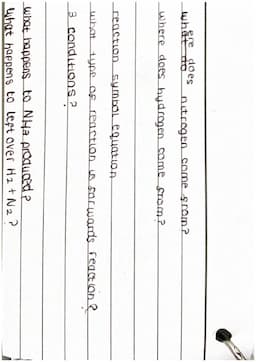 where does nitrogen come from?
where does hydrogen come from?
reaction symbol equation
what type of reaction is forwards reaction?
3 conditions?
what happens to NH3 produced?
what happens to left over H2 + N2?